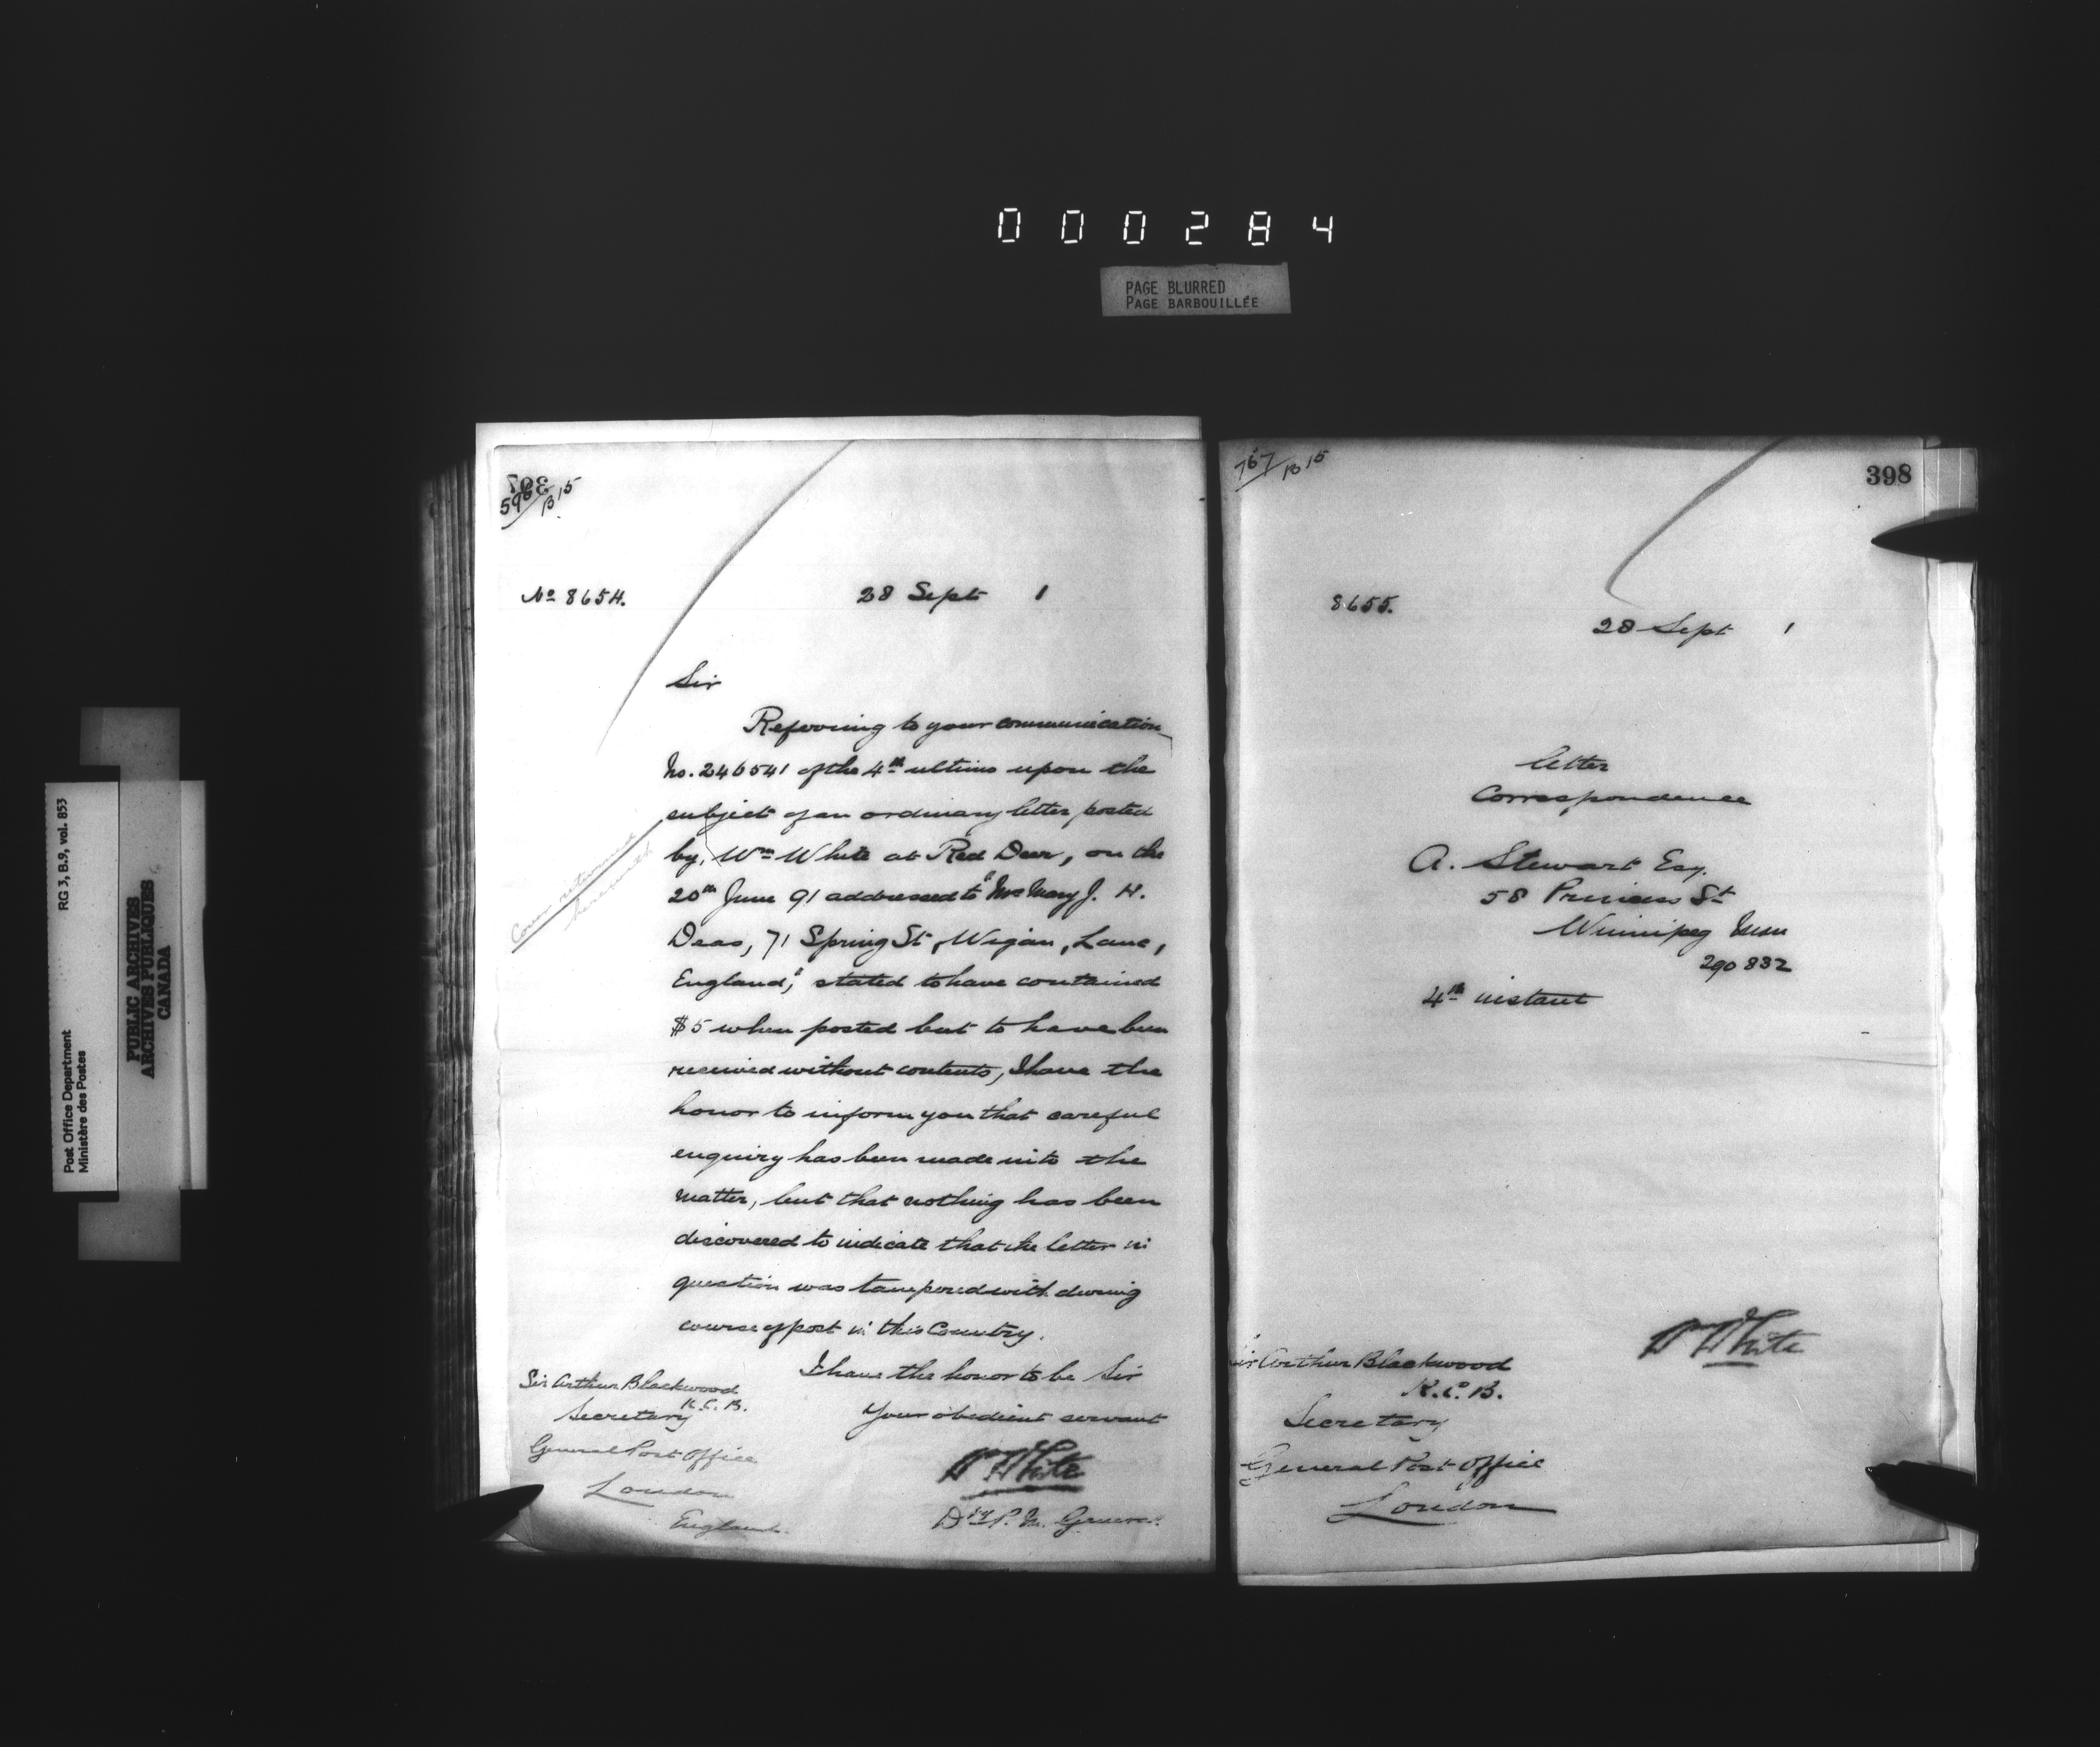 000284
PAGE BLURRED
PAGE BARBOUILLÉE
RG 3, B.9, vol. 853
Post Office Department
Ministère des Postes
PUBLIC ARCHIVES
ARCHIVES PUBLIQUES
CANADA
397
596/B15
No 8654.
28 Sept 1
Sir
Referring to your communication
No. 246541 of the 4th ultimo upon the
subject of an ordinary letter posted
by Wm White at Red Deer, on the
20th June 91 addressed to "Mrs Mary J. H.
Deas, 71 Spring St, Wigan, Lanc,
England," stated to have contained
$5 when posted but to have been
received without contents, I have the
honor to inform you that careful
enquiry has been made into the
matter, but that nothing has been
discovered to indicate that the letter in
question was tampered with during
course of post in this Country.
I have the honor to be Sir
Your obedient servant
W White
Dy P. M. General
Cover returned
herewith
Sir Arthur Blackwood
K. C. B.
Secretary
General Post Office
London
England
767/B15
398
8655.
28 Sept 1
letter
Correspondence
A. Stewart Esq.
58 Princess St
Winnipeg Man
290832
4th instant
W White
Sir Arthur Blackwood
K. C. B.
Secretary
General Post Office
London